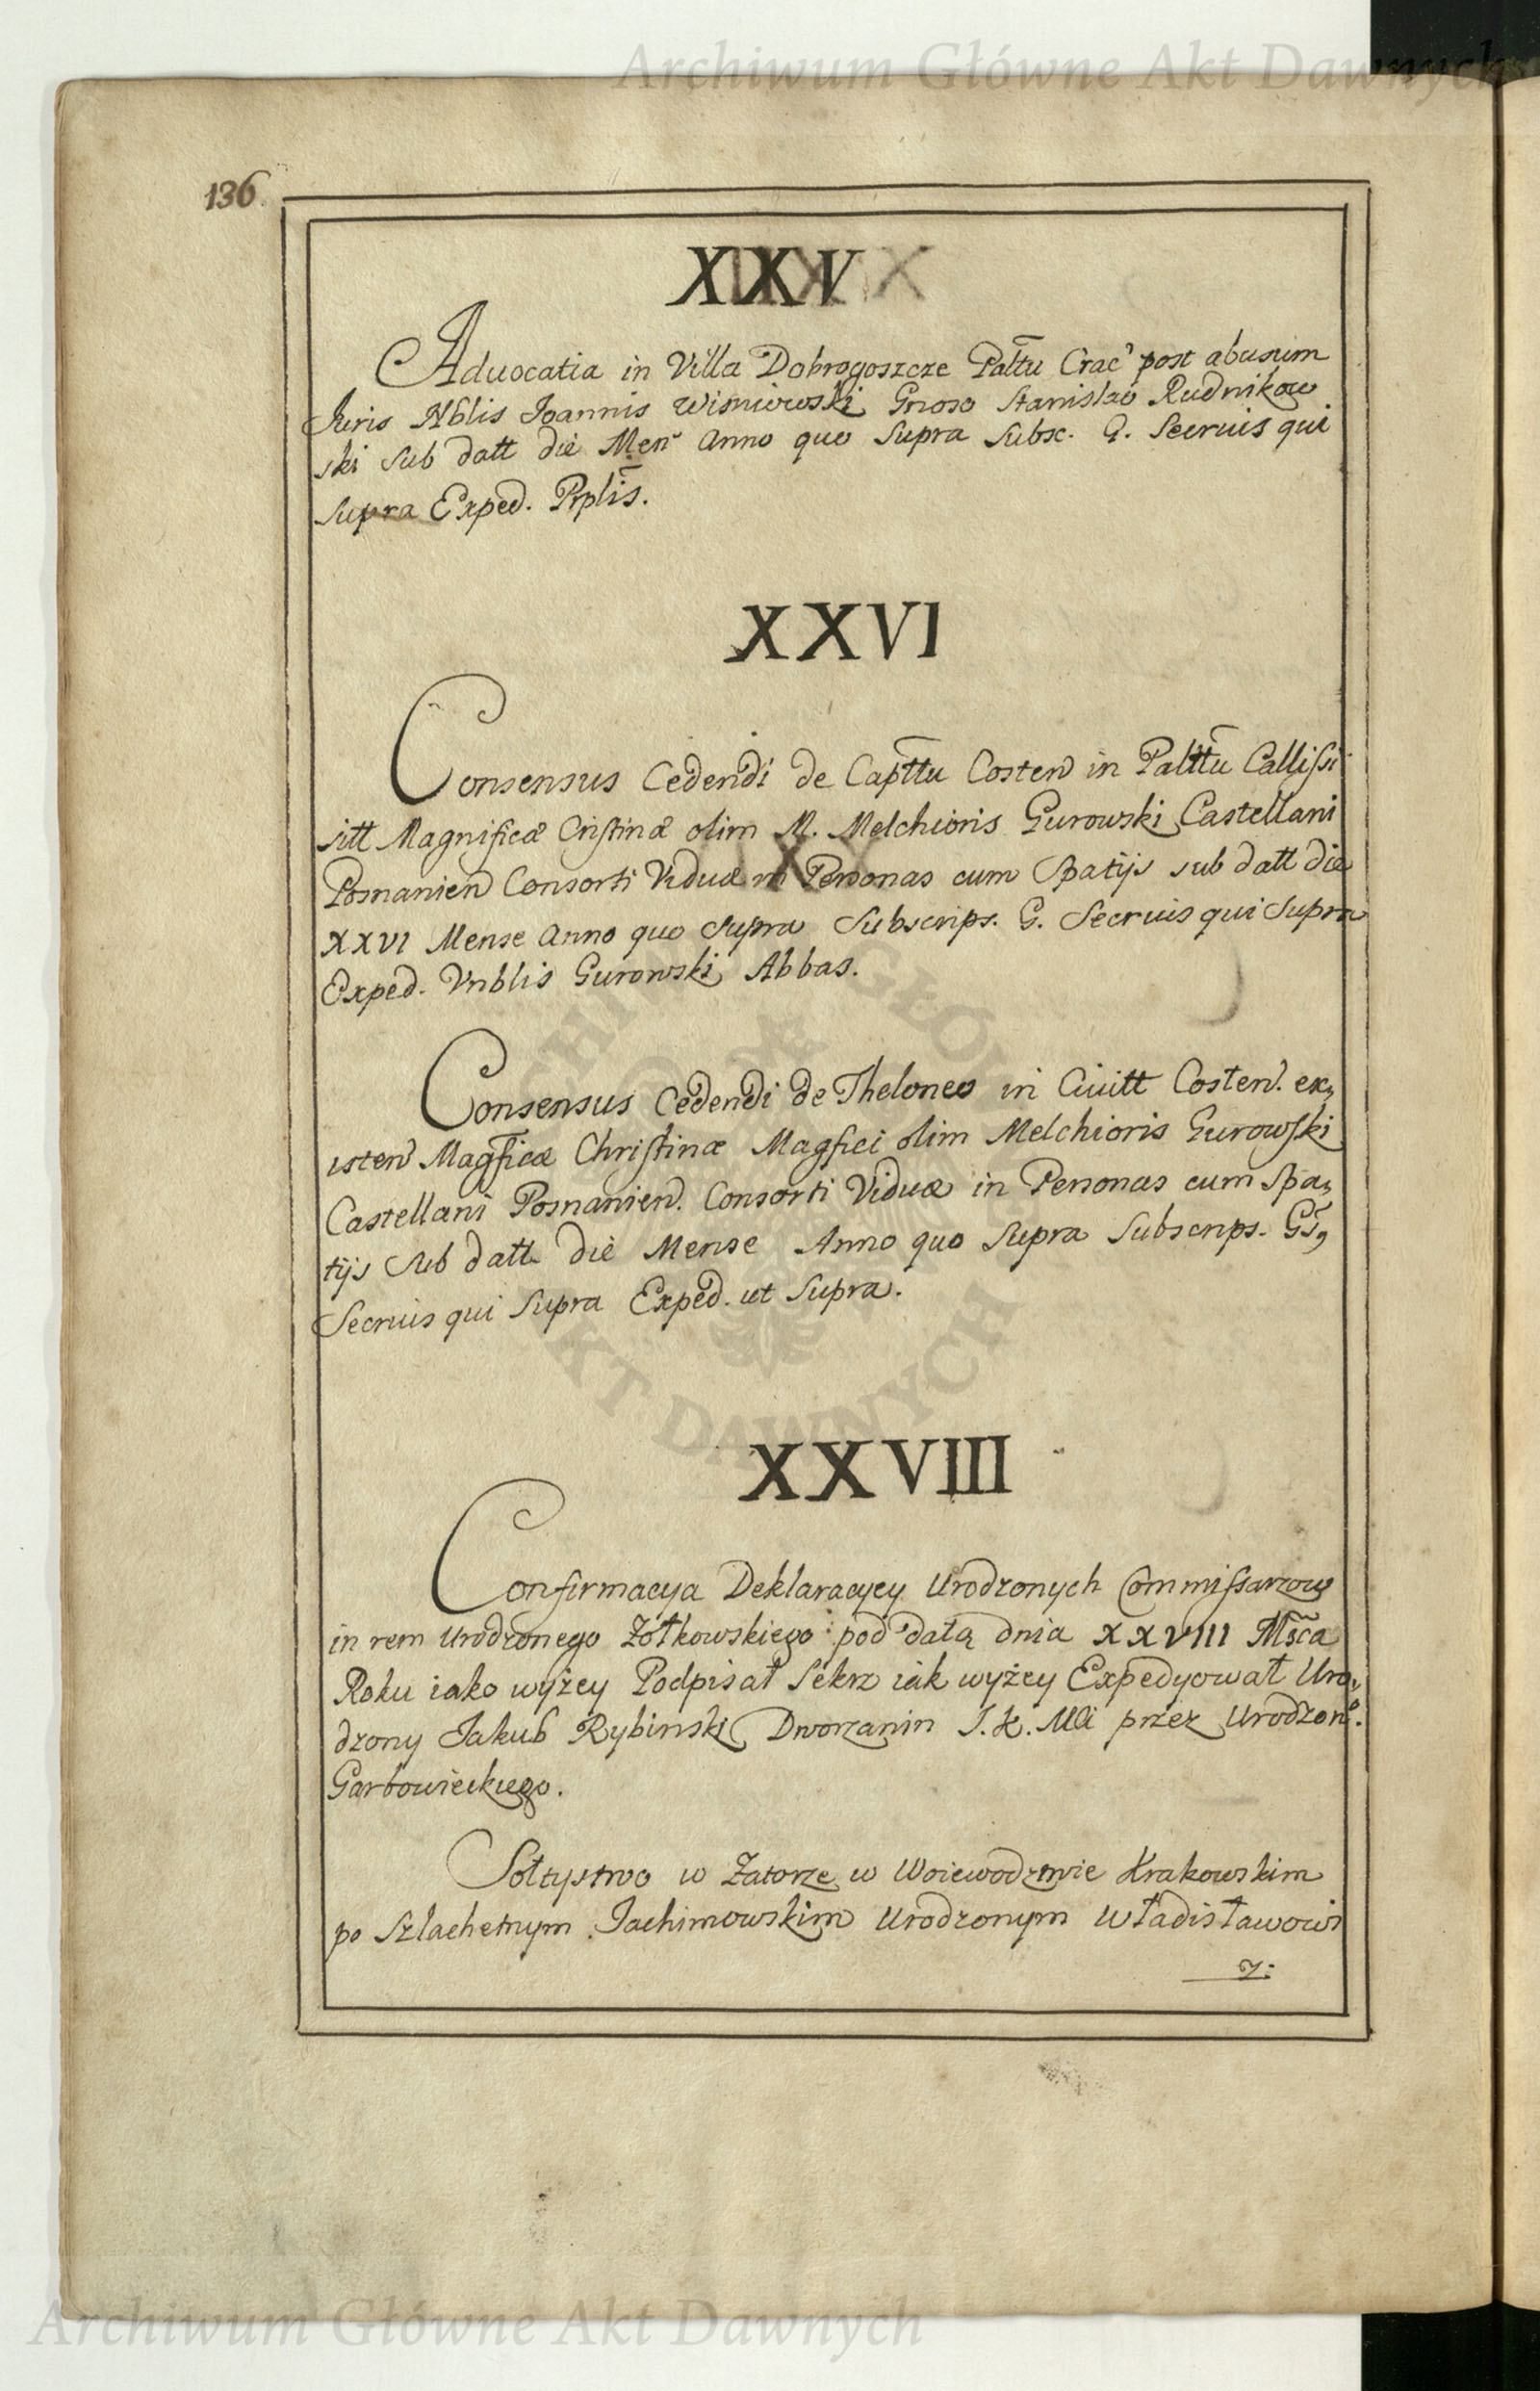 Archiwum Główne Akt Dawnych
136.
XXV
Aduocatia in Villa Dobrogoszcze Palttu Crac post abusum
Iuris Nblis Ioannis Wisniowski Gnoso Stanislao Rudnikow
ski sub datt die Men Anno quo supra Subsc. G. Secruis qui
supra Exped. Prplis.
XXVI
Consensus Cedendi de Capttu Costen in Palttu Callissi
sitt Magnificæ Cristinæ olim M. Melchioris Gurowski Castellani
Posnanien Consorti Viduæ in Personas cum Spatijs sub datt die
XXVI Mense Anno quo supra Subscrips. G. Secruis qui supra
Exped. Vnblis Gurowski Abbas.
Consensus Cedendi de Theloneo in Ciuitt Costen. ex,
isten Magficæ Christinæ Magfici olim Melchioris Gurowski
Castellani Posnanien. Consorti Viduæ in Personas cum Spa,
tijs sub datt die Mense Anno quo supra Subscrips. Gs,
Secruis qui supra Exped. ut supra.
XXVIII
Confirmacya Deklaracyey Urodzonych Commissarzow
in rem Urodzonego Zółkowskiego pod datą dnia XXVIII Msca
Roku iako wyżey Podpisał Sekrz iak wyżey Expedyował Uro,
dzony Jakub Rybinski Dworzanin J. K. Mci przez Urodzon.
Garbowieckiego.
Sołtystwo w Zatorze w Woiewodztwie Krakowskim
po Szlachetnym Jachimowskim Urodzonym Władisławowi
7:
ARCHIWUM GŁÓWNE AKT DAWNYCH
Archiwum Główne Akt Dawnych